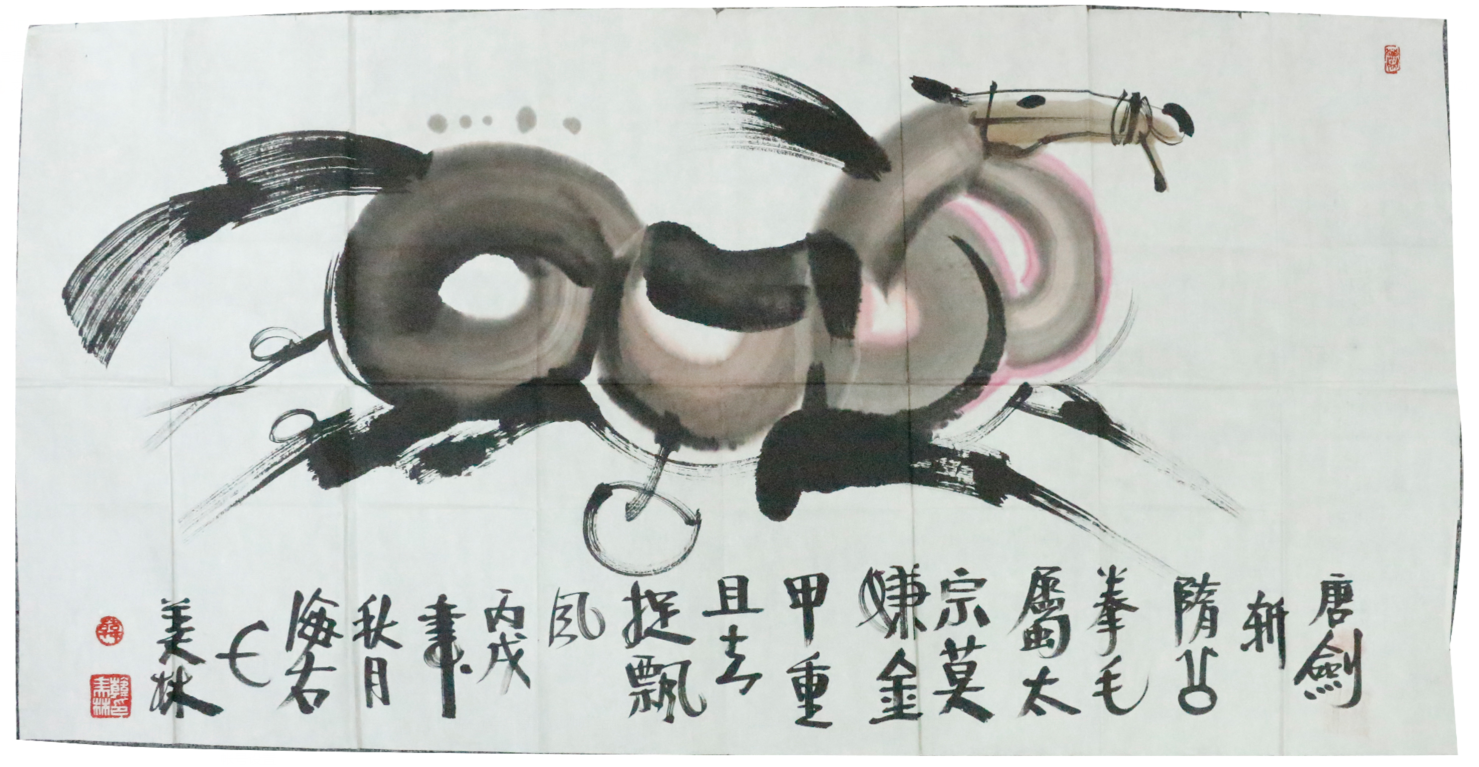 唐劍
斬
隋公
拳毛
屬太
宗莫
嫌金
甲重
且去
捉飄
风
丙戌
秋月
海右
美林
韓美林印